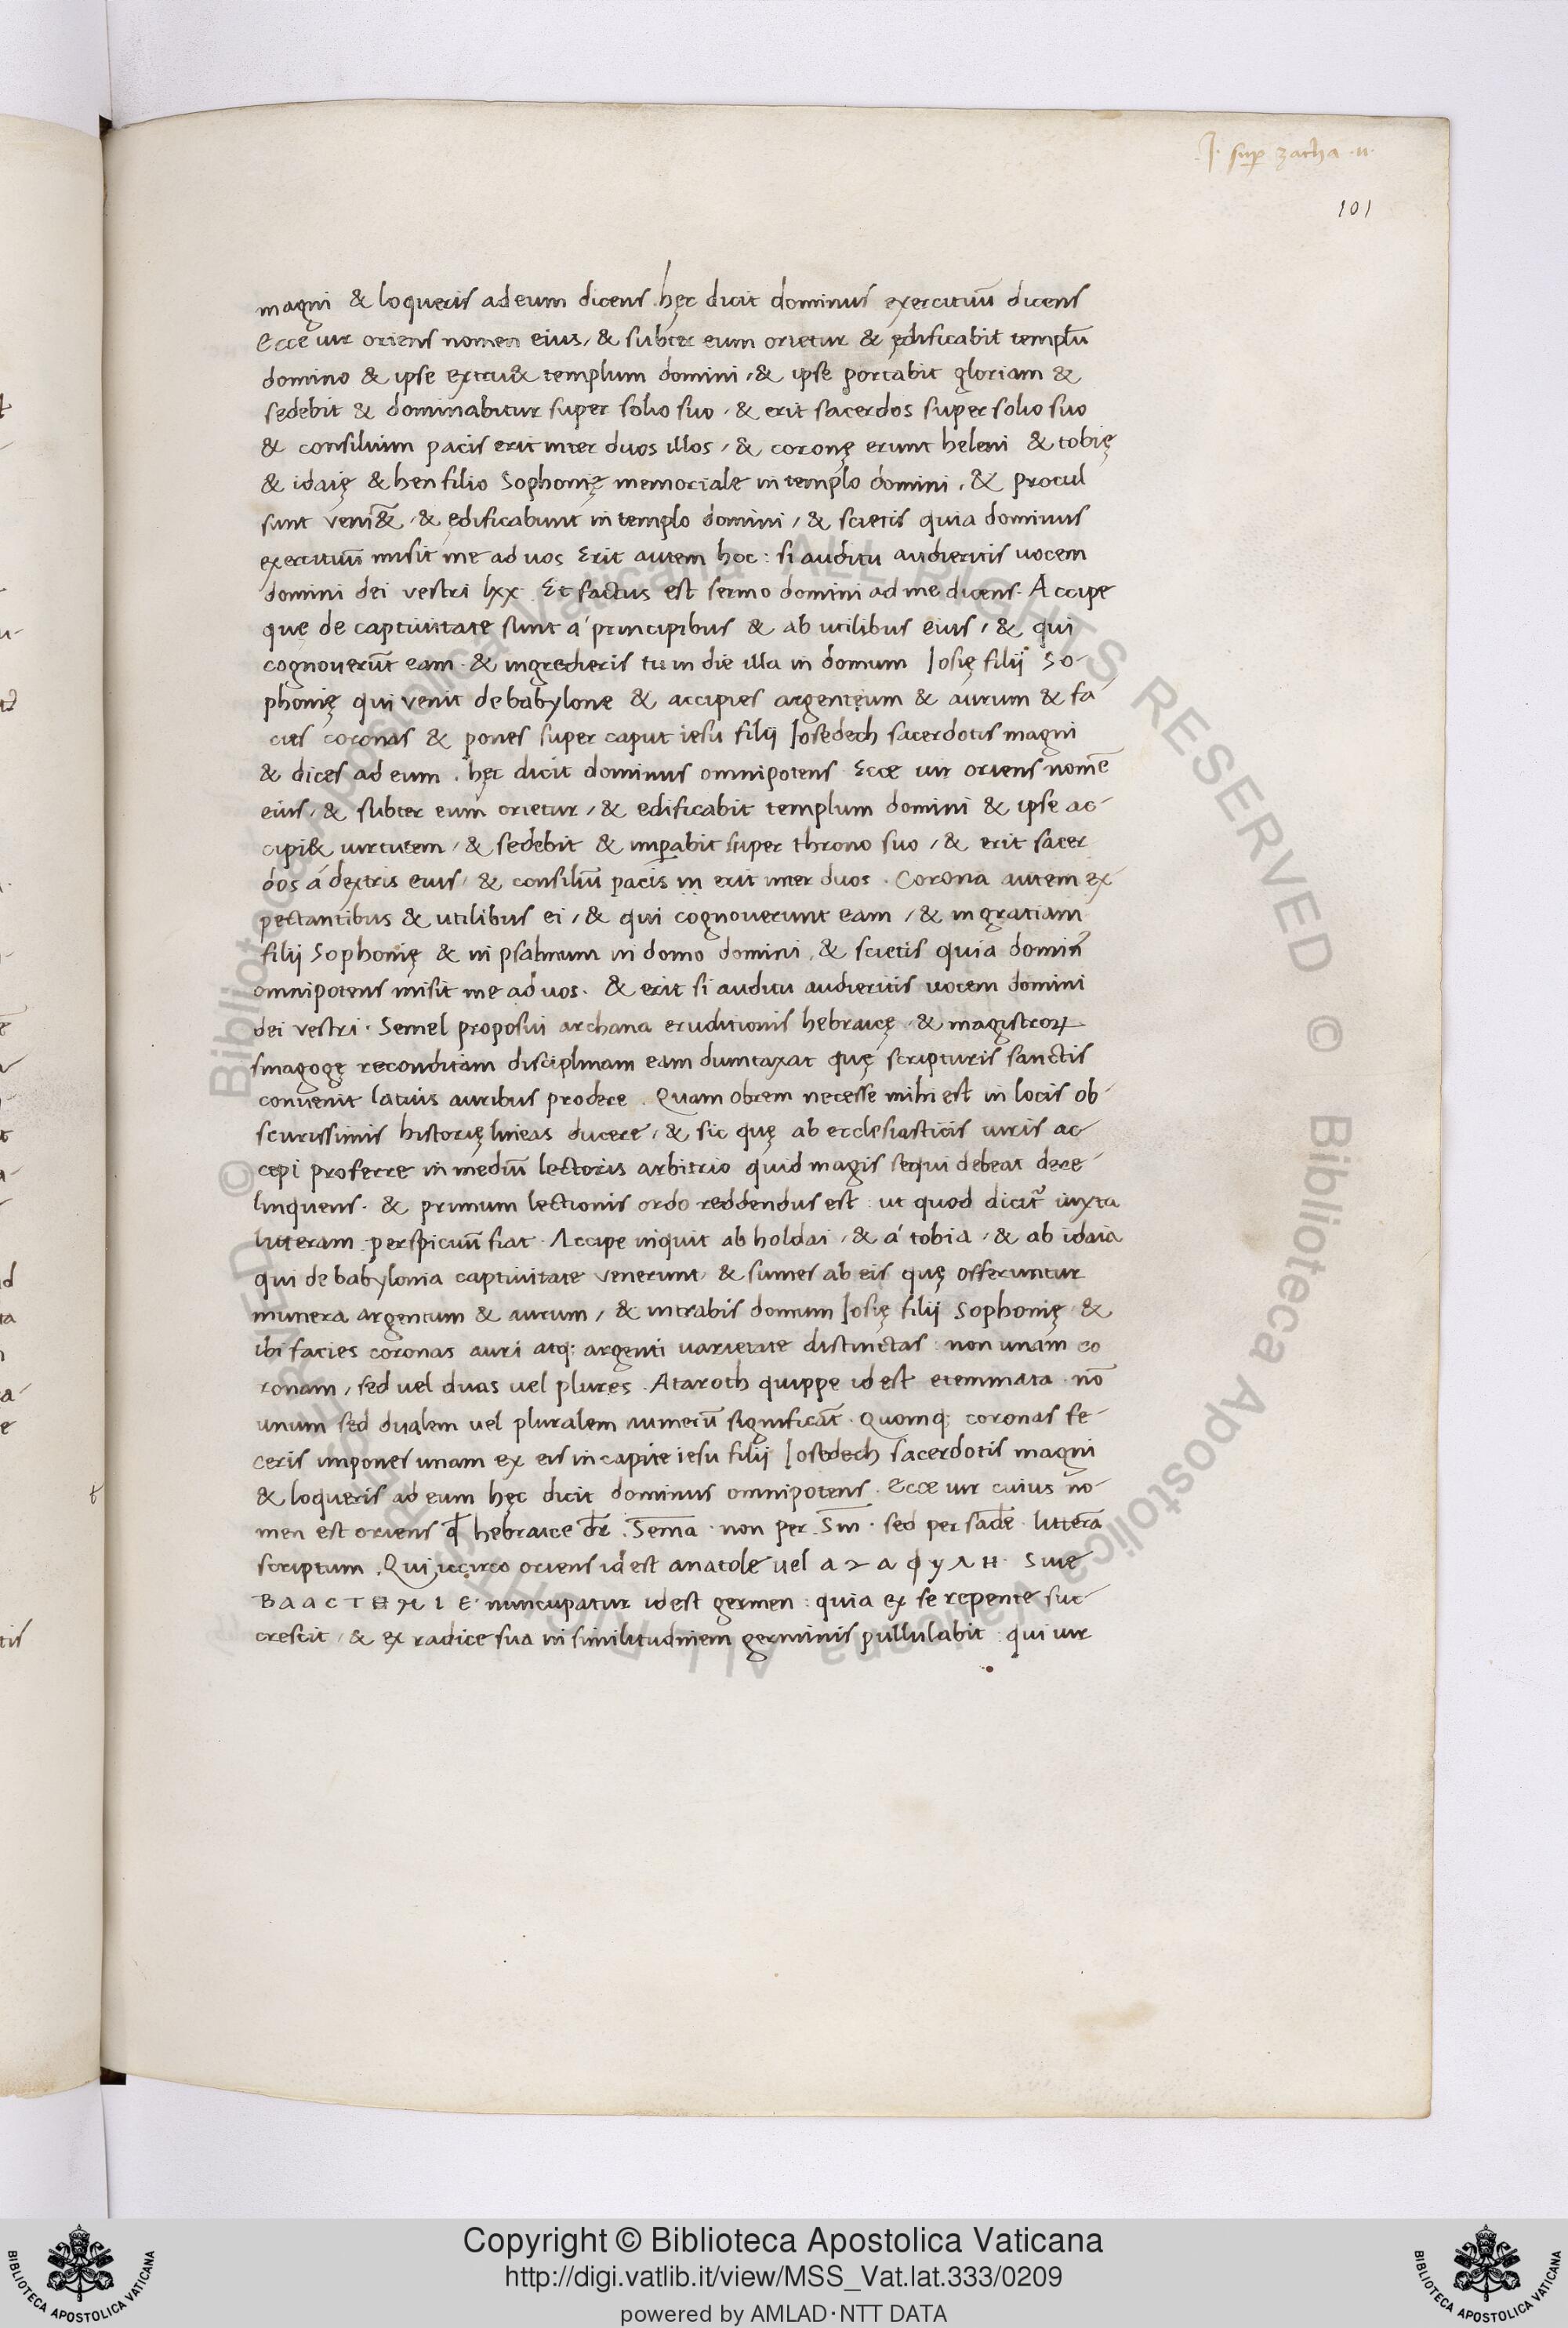 J. sup zacha .II.
101
magni & loqueris ad eum dicens hęc dicit dominus exercituũ dicens
Ecce uir oriens nomen eius, & subter eum orietur & ędificabit templũ
domino & ipse extru& templum domini, & ipse portabit gloriam &
sedebit & dominabitur super solio suo, & erit sacerdos super solio suo
& consilium pacis erit inter duos illos, & coronę erunt heleni & tobię
& idaię & hen filio Sophonię memoriale in templo domini, & procul
sunt veni&̃, & ędificabunt in templo domini, & scietis quia dominus
exercituũ misit me ad uos Erit autem hoc: si auditu audieritis uocem
domini dei vestri lxx. Et factus est sermo domini ad me dicens. Accipe
quę de captiuitate sunt á principibus & ab utilibus eius, & qui
cognouerũt eam. & ingredieris tu in die illa in domum Iosię filij So-
phonię qui venit de babylone & accipies argenteum & aurum & fa
cies coronas & pones super caput iesu filij Iosedech sacerdotis magni
& dices ad eum. hęc dicit dominus omnipotens Ecce uir oriens nomẽ
eius, & subter eum orietur, & edificabit templum domini & ipse ac-
cipi& uirtutem, & sedebit & imꝑabit super throno suo, & erit sacer
dos á dextris eius, & consiliũ pacis in erit inter duos. Corona autem ex-
pectantibus & utilibus ei, & qui cognouerunt eam, & in gratiam
filij Sophonię & in psalmum in domo domini, & scietis quia dominꝰ
omnipotens misit me ad uos. & erit si auditu audieritis uocem domini
dei vestri. Semel proposui archana eruditionis hebraicę, & magistroꝝ
sinagogę reconditam disciplinam eam dumtaxat quę scripturis sanctis
conuenit latiis auribus prodere. Quam obrem necesse mihi est in locis ob-
scurissimis historię lineas ducere, & sic quę ab ecclesiasticis uiris ac-
cepi proferre in mediũ lectoris arbitrio quid magis sequi debeat dere-
linquens. & primum lectionis ordo reddendus est: ut quod dicit̃ iuxta
litteram perspicuũ fiat. Accipe inquit ab holdai, & á tobia, & ab idaia
qui de babylonia captiuitate venerunt, & sumes ab eis quę offeruntur
munera argentum & aurum, & intrabis domum Iosię filij Sophonię &
ibi facies coronas auri atq: argenti uarietate distinctas: non unam co
ronam, sed uel duas uel plures. Ataroth quippe id est etemmata. nõ
unum sed dualem uel pluralem numerũ significãt. Quomq; coronas fe-
ceris impones unam ex eis in capite iesu filij Iosedech sacerdotis magni
& loqueris ad eum hęc dicit dominus omnipotens. Ecce uir cuius no-
men est oriens qđ hebraice dr̃. Sem̃a. non per Sm̃. sed per sad̃e litterã
scriptum. Qui iccirco oriens id est anatole uel α ν α φ y λ H. Siue
B Λ A C T H M I E nuncupatur id est germen: quia ex se repente suc-
crescit, & ex radice sua in similitudinem germinis pullulabit: qui uir
Copyright © Biblioteca Apostolica Vaticana
http://digi.vatlib.it/view/MSS_Vat.lat.333/0209
powered by AMLAD·NTT DATA
BIBLIOTECA APOSTOLICA VATICANA
BIBLIOTECA APOSTOLICA VATICANA